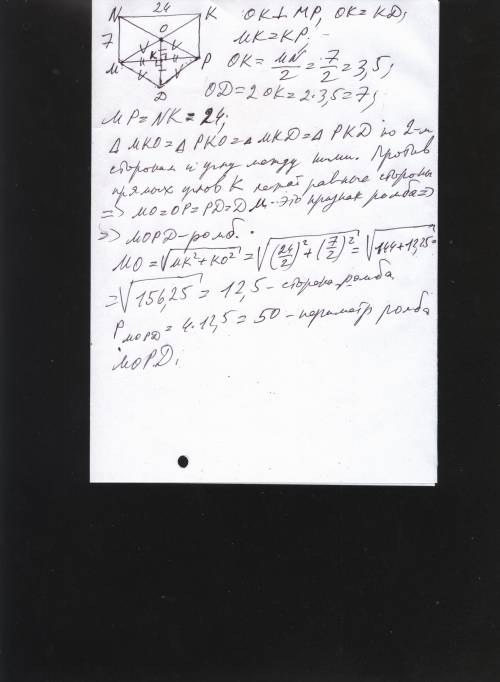 N 24 K OK ⊥ MP, OK = KD;
O MK = KP;
7 M K P OK = MN/2 = 7/2 = 3,5;
D OD = 2OK = 2·3,5 = 7;
MP = NK = 24;
Δ MKO = Δ PKO = Δ MKD = Δ PKD по 2-м
сторонам и углу между ними. Против
прямых углов K лежат равные стороны
=> MO = OP = PD = DM - это признак ромба =>
=> MOPD - ромб.
MO = √MK² + KO² = √(24/2)² + (7/2)² = √144 + 12,25 =
= √156,25 = 12,5 - сторона ромба
P MOPD = 4·12,5 = 50 - периметр ромба
MOPD;